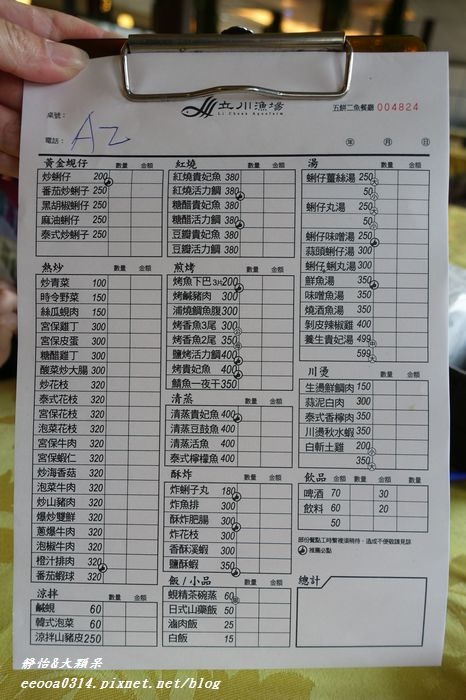 立川漁場
Li Chuan Aquafarm
五餅二魚餐廳 004824
桌號：
A2
電話：
年 月 日
黃金蜆仔 數量 金額
炒蜊仔 200
番茄炒蜊仔 250
黑胡椒蜊仔 250
麻油蜊仔 250
泰式炒蜊仔 250
熱炒 數量 金額
炒青菜 100
時令野菜 150
絲瓜蜆肉 150
宮保雞丁 300
宮保皮蛋 300
糖醋雞丁 300
酸菜炒大腸 300
炒花枝 320
泰式花枝 320
宮保花枝 320
泡菜花枝 320
宮保牛肉 320
宮保蝦仁 320
炒海香菇 320
泡菜牛肉 320
炒山豬肉 320
爆炒雙鮮 320
蔥爆牛肉 320
泡椒牛肉 320
橙汁排肉 320
番茄蝦球 320
涼拌 數量 金額
鹹蜆 60
韓式泡菜 60
涼拌山豬皮 250
紅燒 數量 金額
紅燒貴妃魚 380
紅燒活力鯛 380
糖醋貴妃魚 380
糖醋活力鯛 380
豆瓣貴妃魚 380
豆瓣活力鯛 380
煎烤 數量 金額
烤魚下巴 3片 200
烤鹹豬肉 300
浦燒鯛魚腹 300
烤香魚3尾 300
烤香魚2尾 350
鹽烤活力鯛 400
烤貴妃魚 400
鯖魚一夜干 350
清蒸 數量 金額
清蒸貴妃魚 400
清蒸豆鼓魚 400
清蒸活魚 400
泰式檸檬魚 400
酥炸 數量 金額
炸蜊子丸 180
炸魚排 300
酥炸肥腸 300
炸花枝 300
香酥溪蝦 300
鹽酥蝦 350
飯/小品 數量 金額
蜆精茶碗蒸 60
日式山藥飯 50
滷肉飯 25
白飯 15
湯 數量 金額
蜊仔薑絲湯 250 大
50 小
蜊仔丸湯 250 大
50 小
蜊仔味噌湯 250
蒜頭蜊仔湯 300
蜊仔,蜊丸湯 300
鮮魚湯 350
味噌魚湯 350
燒酒魚湯 350
剝皮辣椒雞 400
養生貴妃湯 499 中
599 大
川燙 數量 金額
生燙鮮鯛肉 150
蒜泥白肉 300
泰式香檸肉 350
川燙秋水蝦 350
白斬土雞 200 小
350 大
飲品 數量 金額
啤酒 70 30
飲料 60 20
50
部份餐點工時繁複須稍待，造成不便敬請見諒
推薦必點
總計
靜怡&大顆呆
eeooa0314.pixnet.net/blog